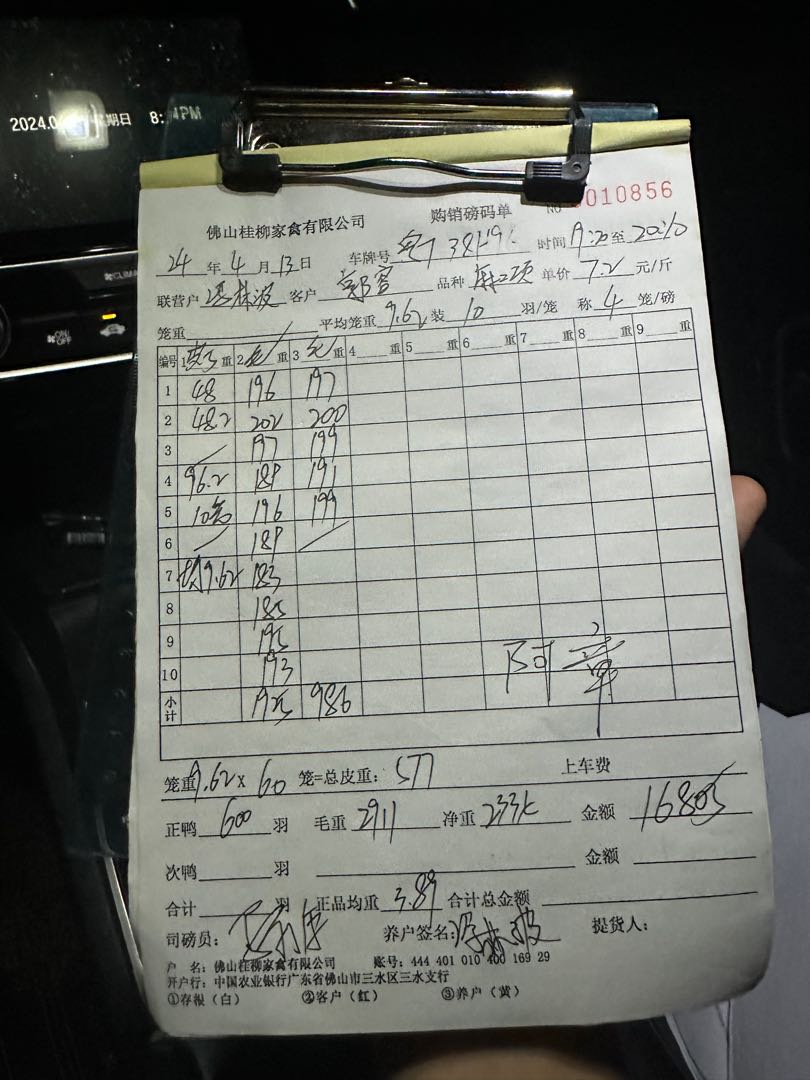 2024.0 期日 8: 4PM
佛山桂柳家禽有限公司 购销磅码单 NO 0010856
24 年 4 月 13 日 车牌号 时间 至
联营户 林波 客户 郭 品种 麻 单价 7.2 元/斤
笼重 平均笼重 9.62 装 10 羽/笼 称 4 笼/磅
编号 1 重 2 毛 重 3 毛 重 4 重 5 重 6 重 7 重 8 重 9 重
1 48 196 197
2 48.2 202 200
3 197 199
4 96.2 189 191
5 10 196 199
6 189
7 9.62 183
8 185
9 195
10 193
小计 1925 986
笼重 9.62 x 60 笼=总皮重: 577 上车费
正鸭 600 羽 毛重 2911 净重 金额 16805
次鸭 羽 金额
合计 羽 正品均重 3.89 合计总金额
司磅员: 养户签名: 林波 提货人:
户 名: 佛山桂柳家禽有限公司 账号: 444 401 010 400 169 29
开户行: 中国农业银行广东省佛山市三水区三水支行
①存根(白) ②客户(红) ③养户(黄)
阿章
ON/OFF